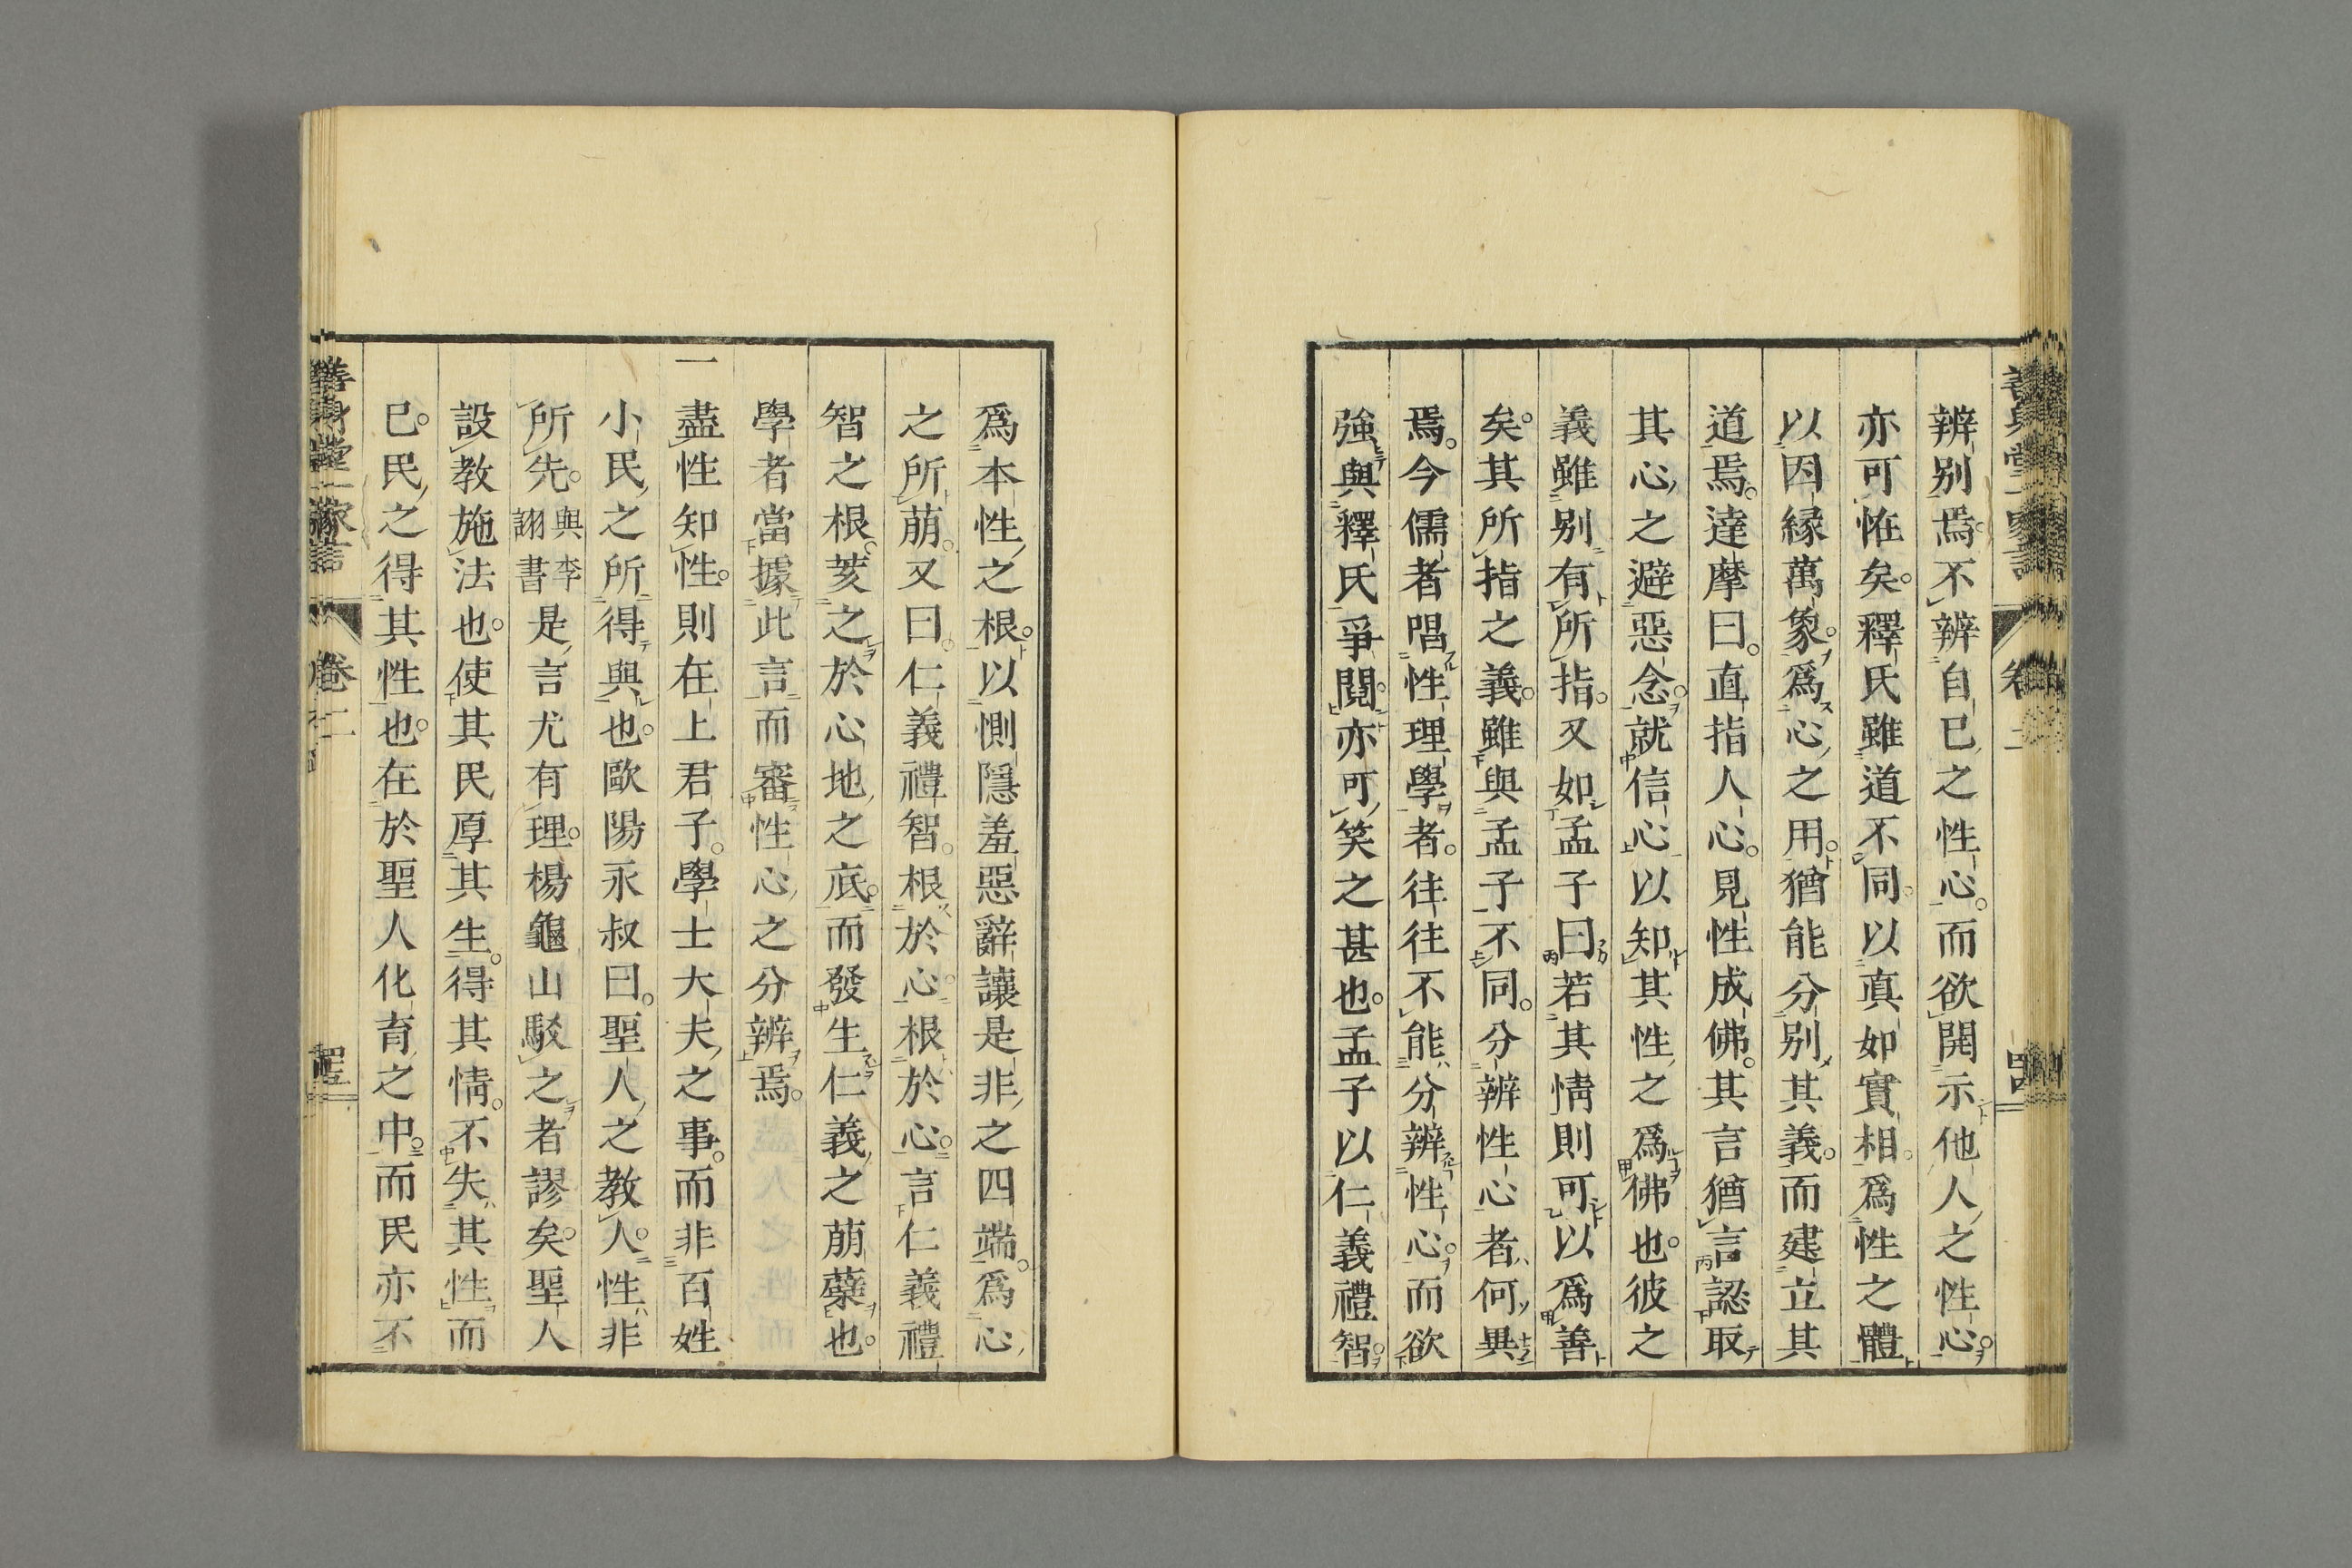 辨别焉不辨自已之性心而欲開示他人之性心
亦可恠矣釋氏雖道不同以眞如實相爲性之體
以因縁萬象爲心之用猶能分别其義而建立其
道焉達摩曰直指人心見性成佛其言猶言認取
其心之避惡念就信心以知其性之爲佛也彼之
義雖别有所指又如孟子曰若其情則可以爲善
矣其所指之義雖與孟子不同分辨性心者何異
焉今儒者唱性理學者往往不能分辨性心而欲
強與釋氏爭鬩亦可笑之甚也孟子以仁義禮智
爲本性之根以惻隱羞惡辭讓是非之四端爲心
之所萠又曰仁義禮智根於心根於心言仁義禮
智之根荄之於心地之底而發生仁義之萠蘖也
學者當據此言而審性心之分辨焉
一盡性知性則在上君子學士大夫之事而非百姓
小民之所得與也歐陽永叔曰聖人之教人性非
所先與李詡書是言尤有理楊龜山駁之者謬矣聖人
設教施法也使其民厚其生得其情不失其性而
已民之得其性也在於聖人化育之中而民亦不
卷二